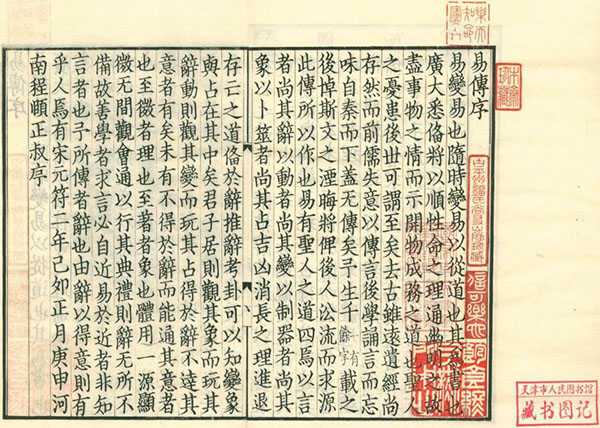 易傳序
易變易也隨時變易以從道也其為書也
廣大悉備將以順性命之理通幽明之故
盡事物之情而示開物成務之道也聖人
之憂患後世可謂至矣去古雖遠遺經尚
存然而前儒失意以傳言後學誦言而忘
味自秦而下蓋无傳矣予生千一有餘字載之
後悼斯文之湮晦將俾後人沿流而求源
此傳所以作也易有聖人之道四焉以言
者尚其辭以動者尚其變以制器者尚其
象以卜筮者尚其占吉凶消長之理進退
存亡之道備於辭推辭考卦可以知變象
與占在其中矣君子居則觀其象而玩其
辭動則觀其變而玩其占得於辭不達其
意者有矣未有不得於辭而能通其意者
也至微者理也至著者象也體用一源顯
微无間觀會通以行其典禮則辭无所不
備故善學者求言必自近易於近者非知
言者也予所傳者辭也由辭以得意則有
乎人焉有宋元符二年己卯正月庚申河
南程頤正叔序
天津市人民图书馆
藏书图记